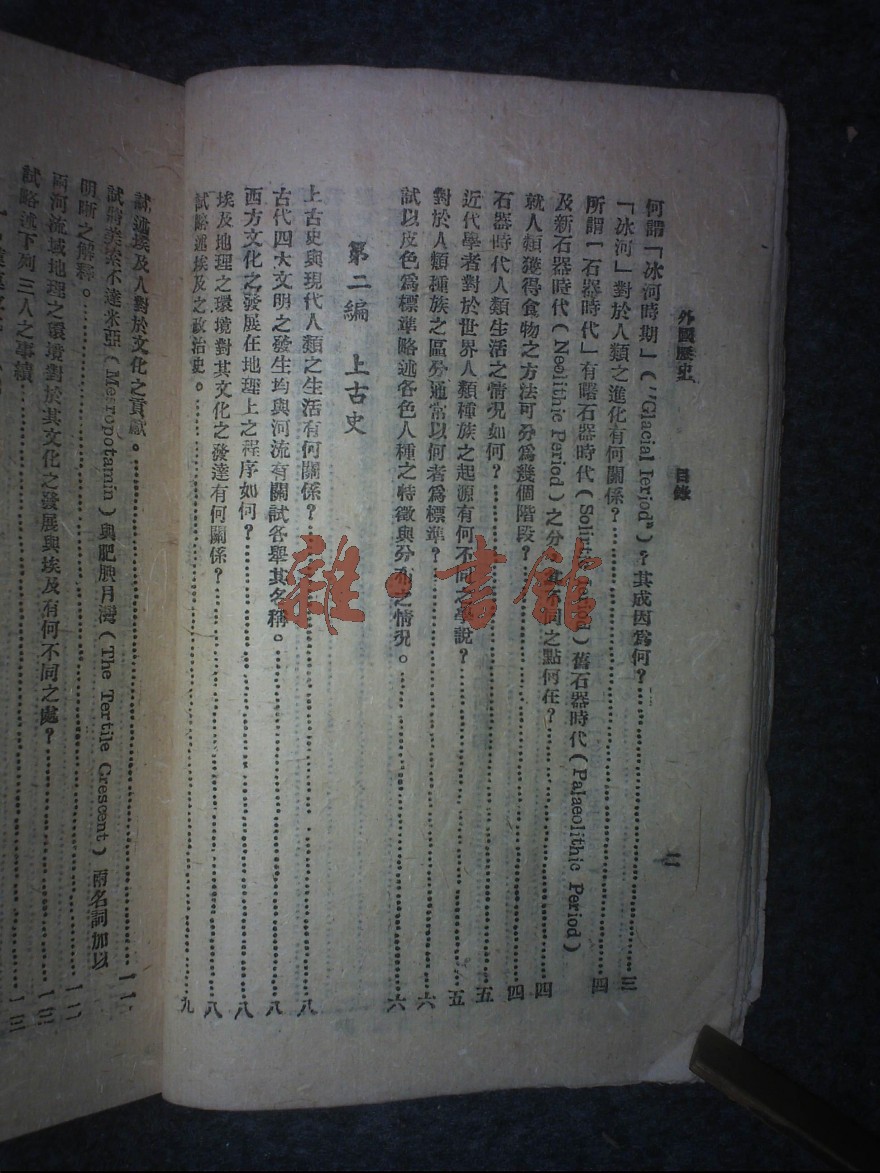 外國歷史　目錄　二
何謂「冰河時期」(''Glacial Ieriod")？其成因爲何？……三
「冰河」對於人類之進化有何關係？……四
所謂「石器時代」有曙石器時代( Period)舊石器時代(Palaeolithic Period)
及新石器時代(Neolithic Period)之分不同之點何在？……四
就人類獲得食物之方法可分爲幾個階段？……四
石器時代人類生活之情況如何？……五
近代學者對於世界人類種族之起源有何不同之學說？……五
對於人類種族之區分通常以何者爲標準？……六
試以皮色爲標準略述各色人種之特徵與分布之情況。……六
第二編　上古史
上古史與現代人類之生活有何關係？……八
古代四大文明之發生均與河流有關試各舉其名稱。……八
西方文化之發展在地理上之程序如何？……八
埃及地理之環境對其文化之發達有何關係？……八
試略述埃及之政治史。……九
試述埃及人對於文化之貢獻。……
試將美索不達米亞(Mesropotamin)與肥腴月灣(The Tertile Crescent)兩名詞加以
明晰之解釋。……
兩河流域地理之環境對於其文化之發展與埃及有何不同之處？……
試略述下列三人之事績……
雜·書館